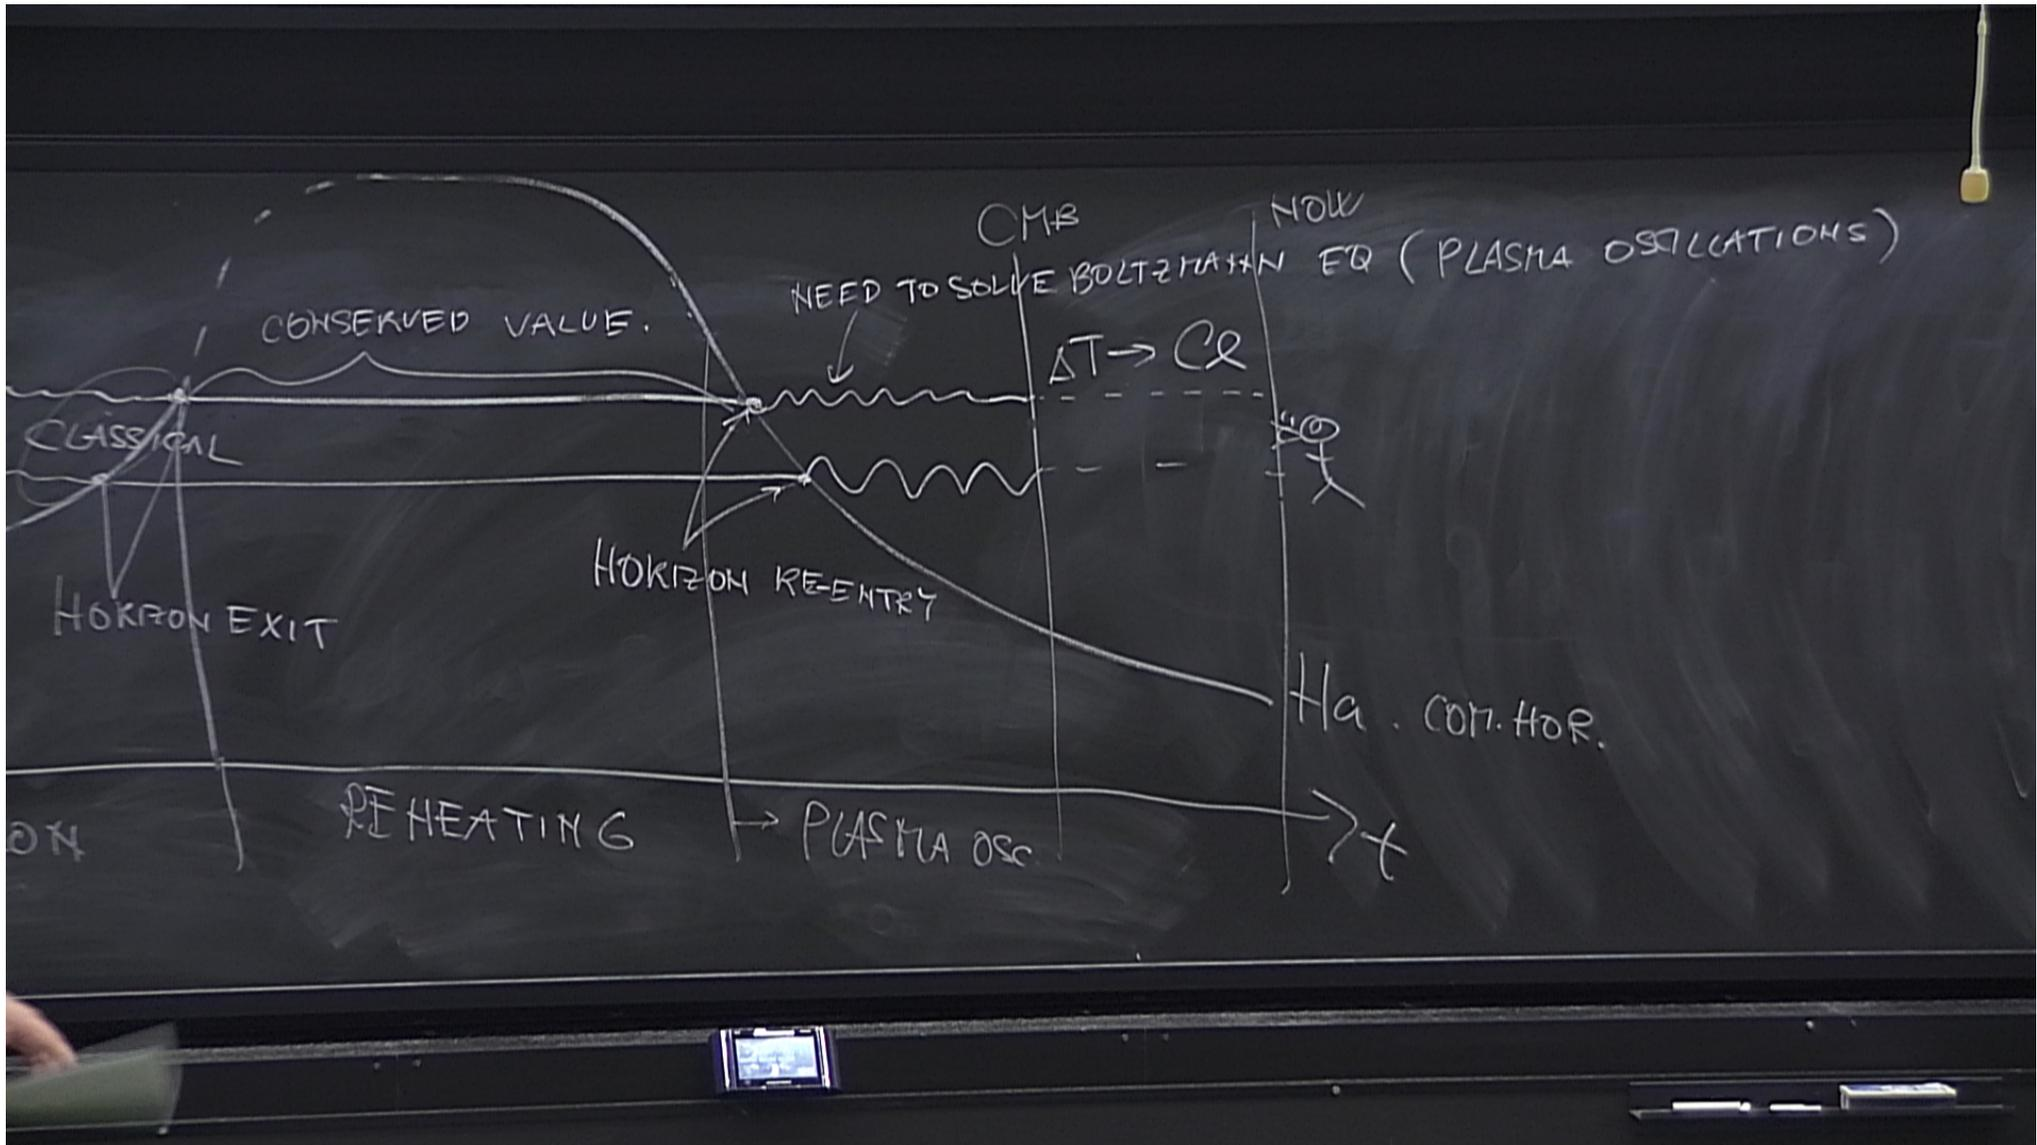 CMB
NOW
NEED TO SOLVE BOLTZMANN EQ (PLASMA OSILLATIONS)
CONSERVED VALUE.
ΔT → Cl
CLASSICAL
HORIZON RE-ENTRY
HORIZON EXIT
Ha. COM. HOR.
ON
REHEATING
→ PLASMA OSC
t